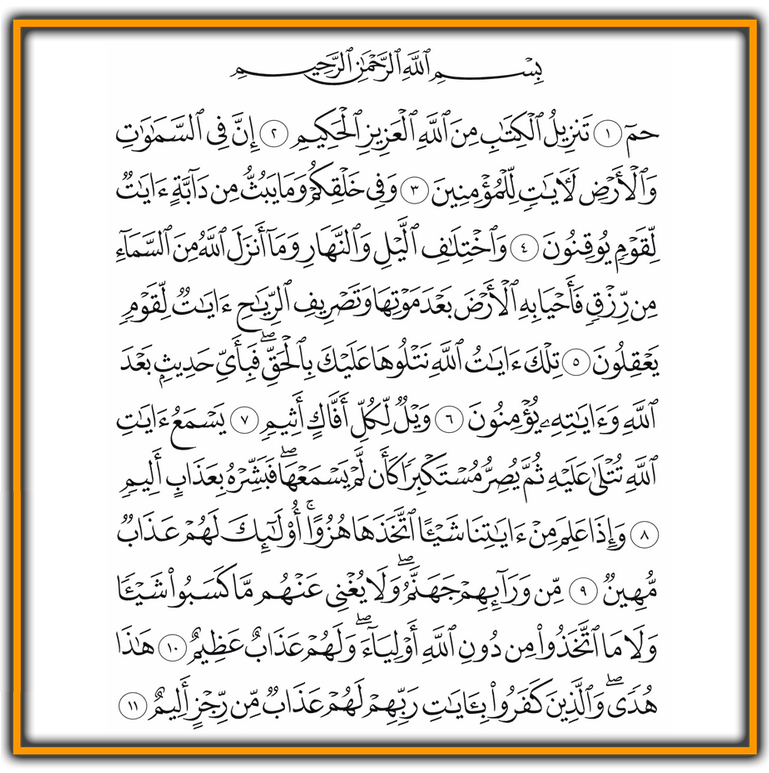 بِسْمِ ٱللَّهِ ٱلرَّحْمَٰنِ ٱلرَّحِيمِ
حمٓ ١ تَنزِيلُ ٱلْكِتَٰبِ مِنَ ٱللَّهِ ٱلْعَزِيزِ ٱلْحَكِيمِ ٢ إِنَّ فِى ٱلسَّمَٰوَٰتِ
وَٱلْأَرْضِ لَءَايَٰتٍ لِّلْمُؤْمِنِينَ ٣ وَفِى خَلْقِكُمْ وَمَا يَبُثُّ مِن دَآبَّةٍ ءَايَٰتٌ
لِّقَوْمٍ يُوقِنُونَ ٤ وَٱخْتِلَٰفِ ٱلَّيْلِ وَٱلنَّهَارِ وَمَآ أَنزَلَ ٱللَّهُ مِنَ ٱلسَّمَآءِ
مِن رِّزْقٍ فَأَحْيَا بِهِ ٱلْأَرْضَ بَعْدَ مَوْتِهَا وَتَصْرِيفِ ٱلرِّيَٰحِ ءَايَٰتٌ لِّقَوْمٍ
يَعْقِلُونَ ٥ تِلْكَ ءَايَٰتُ ٱللَّهِ نَتْلُوهَا عَلَيْكَ بِٱلْحَقِّ ۖ فَبِأَىِّ حَدِيثٍۭ بَعْدَ
ٱللَّهِ وَءَايَٰتِهِۦ يُؤْمِنُونَ ٦ وَيْلٌ لِّكُلِّ أَفَّاكٍ أَثِيمٍ ٧ يَسْمَعُ ءَايَٰتِ
ٱللَّهِ تُتْلَىٰ عَلَيْهِ ثُمَّ يُصِرُّ مُسْتَكْبِرًا كَأَن لَّمْ يَسْمَعْهَا ۖ فَبَشِّرْهُ بِعَذَابٍ أَلِيمٍ
٨ وَإِذَا عَلِمَ مِنْ ءَايَٰتِنَا شَيْـًٔا ٱتَّخَذَهَا هُزُوًا ۚ أُو۟لَٰٓئِكَ لَهُمْ عَذَابٌ
مُّهِينٌ ٩ مِّن وَرَآئِهِمْ جَهَنَّمُ ۖ وَلَا يُغْنِى عَنْهُم مَّا كَسَبُوا۟ شَيْـًٔا
وَلَا مَا ٱتَّخَذُوا۟ مِن دُونِ ٱللَّهِ أَوْلِيَآءَ ۖ وَلَهُمْ عَذَابٌ عَظِيمٌ ١٠ هَٰذَا
هُدًى ۖ وَٱلَّذِينَ كَفَرُوا۟ بِـَٔايَٰتِ رَبِّهِمْ لَهُمْ عَذَابٌ مِّن رِّجْزٍ أَلِيمٌ ١١